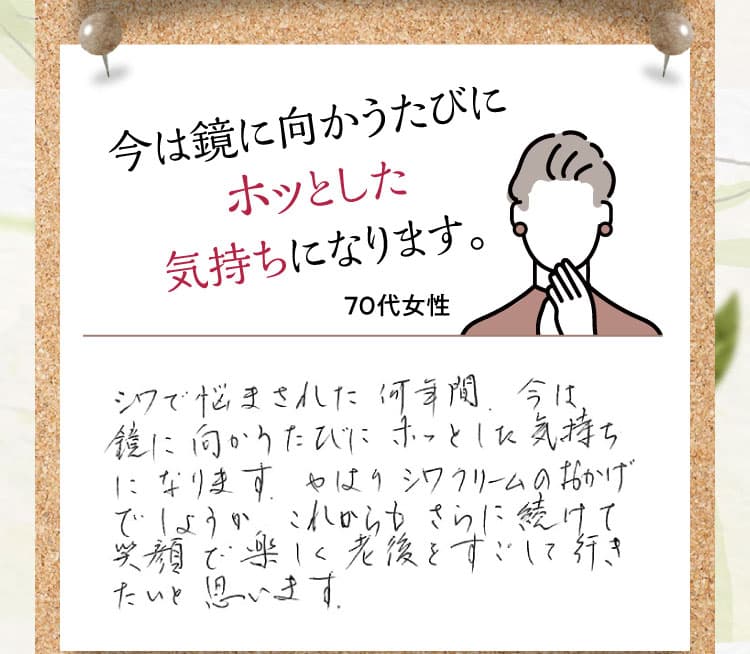 今は鏡に向かうたびに
ホッとした
気持ちになります。
70代女性
シワで悩まされた何年間. 今は
鏡に向かうたびにホッとした気持ち
になります. やはりシワクリームのおかげ
でしょうか これからもさらに続けて
笑顔で楽しく老後をすごして行き
たいと思います.